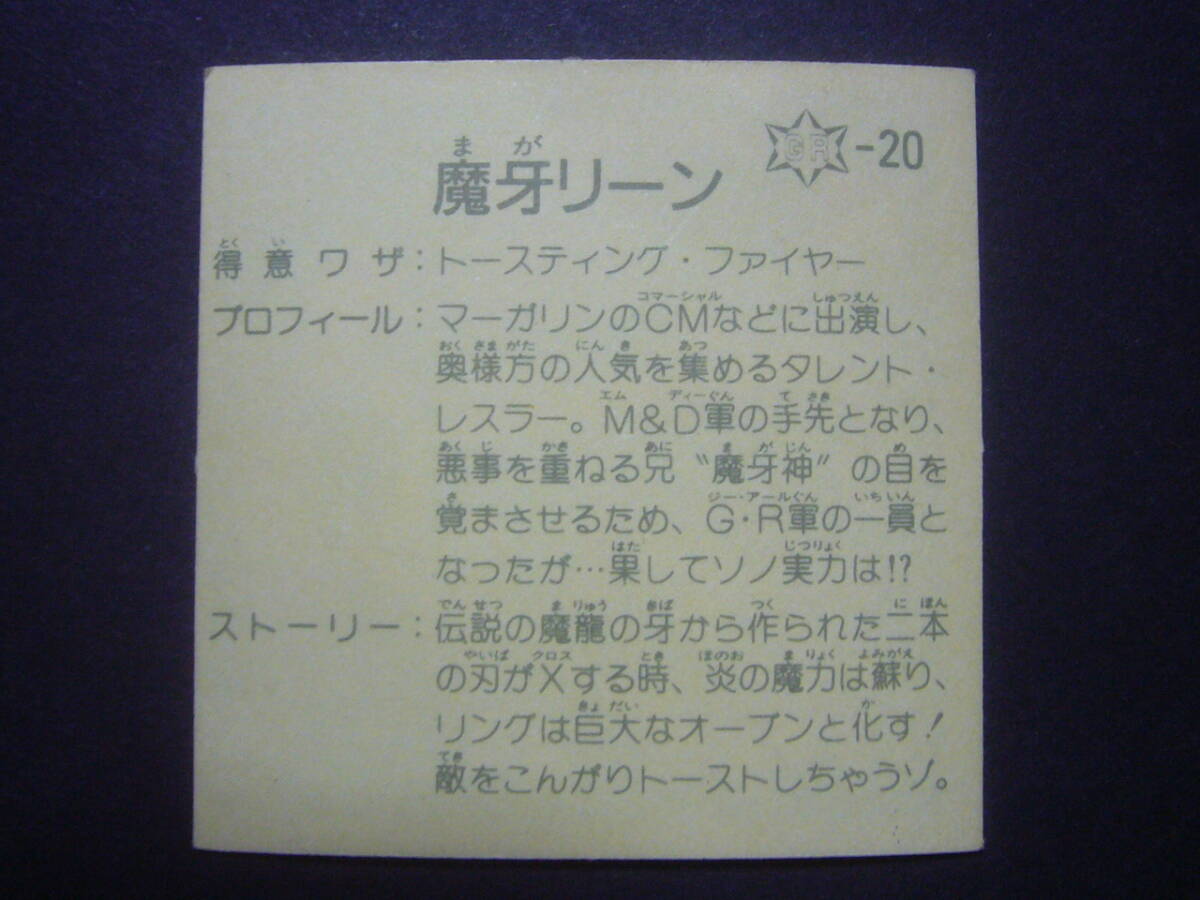 GR-20
まが
魔牙リーン
とくい
得意ワザ：トースティング・ファイヤー
コマーシャル しゅつえん
プロフィール：マーガリンのCMなどに出演し、
おくさまがた にんき あつ
奥様方の人気を集めるタレント・
エム ディーぐん てさき
レスラー。M&D軍の手先となり、
あくじ かさ あに まがじん め
悪事を重ねる兄“魔牙神”の目を
さ ジー・アールぐん いちいん
覚まさせるため、G・R軍の一員と
はた じつりょく
なったが…果してソノ実力は!?
でんせつ まりゅう きば つく にほん
ストーリー：伝説の魔龍の牙から作られた二本
やいば クロス とき ほのお まりょく よみがえ
の刃がXする時、炎の魔力は蘇り、
きょだい か
リングは巨大なオーブンと化す！
てき
敵をこんがりトーストしちゃうゾ。